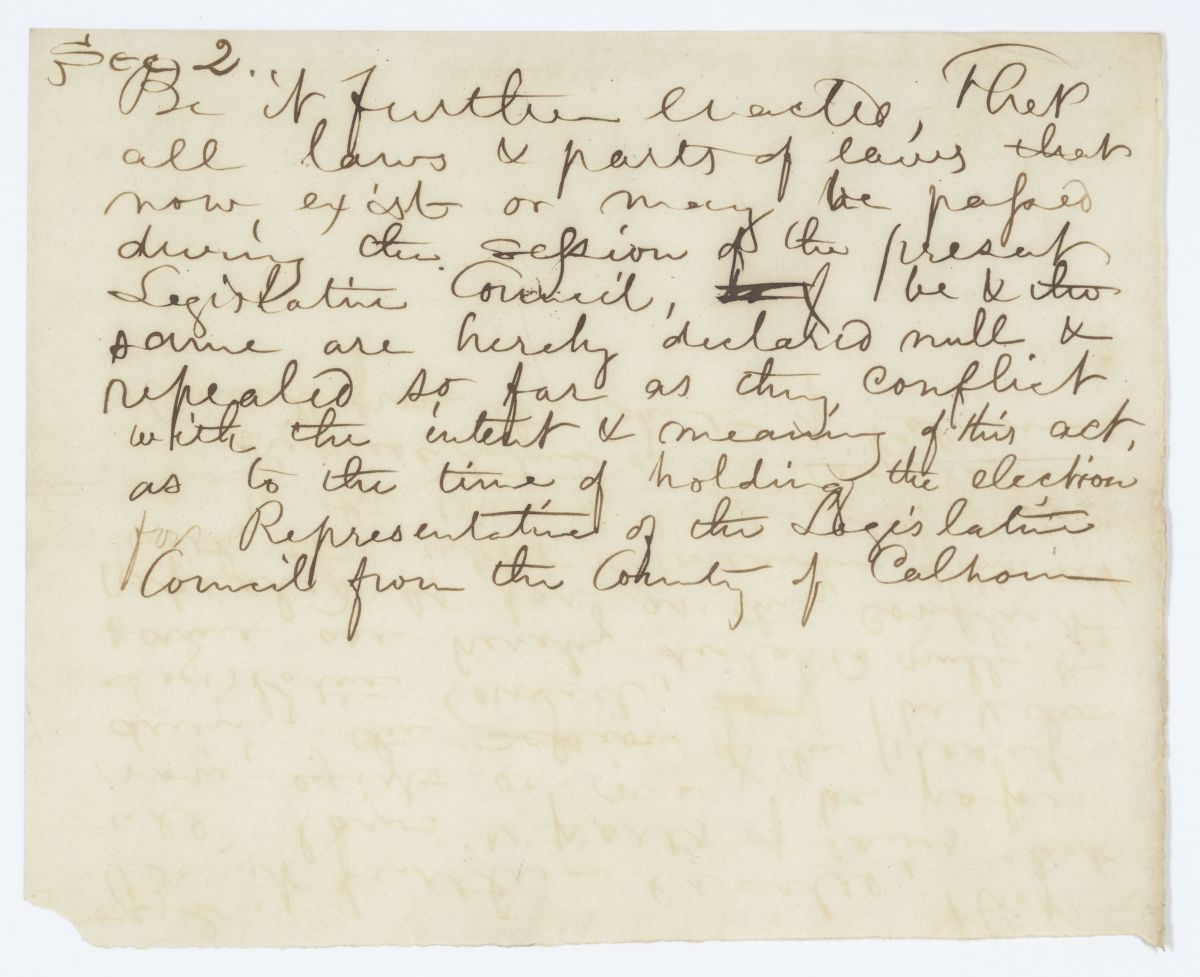 Sec, 2.
Be it further enacted, That
all laws & parts of laws that
now exist or may be passed
during the session of the present
Legislative Council, be & the
same are hereby declared null &
repealed so far as they conflict
with the intent & meaning of this act,
as to the time of holding the election
for Representative of the Legislative
Council from the County of Calhoun